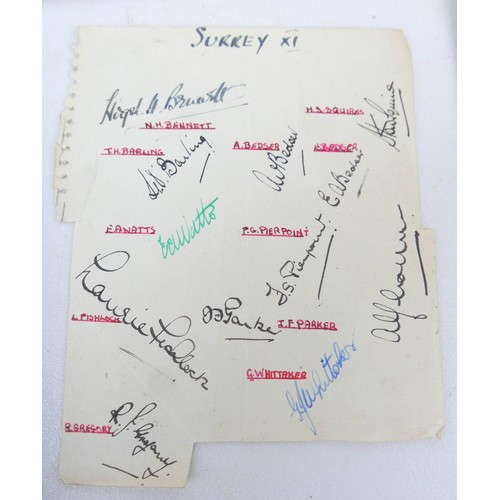 SURREY XI
Nigel H Bennett
N.H BENNETT
H.S SQUIRES
T.H BARLING
A.BEDSER
E.BEDSER
A.V Bedser
E.A Bedser
E.A WATTS
E.A Watts
F.G. PIERPOINT
F. G. Pierpoint
Laurie Fishlock
L. FISHLOCK
J.F Parker
J.F PARKER
Alf Gover
G.WHITTAKER
R.GREGORY
R. J. Gregory.